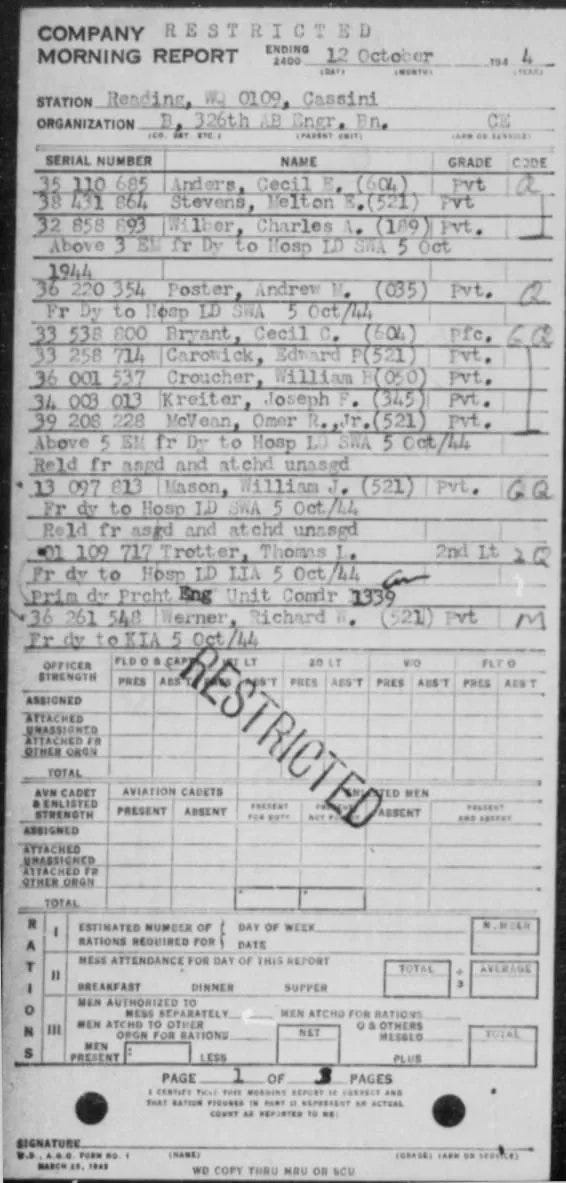 COMPANY RESTRICTED
MORNING REPORT ENDING 2400 12 October 194 4
(DAY) (MONTH) (YEAR)
STATION Reading, WQ 0109, Cassini
ORGANIZATION B, 326th AB Engr. Bn. CE
(CO. BAT. ETC.) (PARENT UNIT) (ARM OR SERVICE)
SERIAL NUMBER NAME GRADE CODE
35 110 685 Anders, Cecil E. (604) Pvt Q
38 431 864 Stevens, Melton E.(521) Pvt
32 858 893 Wilber, Charles A. (189) Pvt.
Above 3 EM fr Dy to Hosp LD SWA 5 Oct
1944
36 220 354 Poster, Andrew M. (035) Pvt. Q
Fr Dy to Hosp LD SWA 5 Oct/44
33 538 800 Bryant, Cecil C. (604) Pfc. GQ
33 258 714 Carowick, Edward P(521) Pvt.
36 001 537 Croucher, William H(050) Pvt.
34 003 013 Kreiter, Joseph F. (345) Pvt.
39 208 228 McVean, Omer R.,Jr.(521) Pvt.
Above 5 EM fr Dy to Hosp LD SWA 5 Oct/44
Reld fr asgd and atchd unasgd
13 097 813 Mason, William J. (521) Pvt. GQ
Fr dy to Hosp LD SWA 5 Oct/44
Reld fr asgd and atchd unasgd
01 109 717 Trotter, Thomas L. 2nd Lt Q
Fr dy to Hosp LD LIA 5 Oct/44
Prim dy Prcht Eng Unit Comdr 1339
36 261 548 Werner, Richard W. (521) Pvt M
Fr dy to KIA 5 Oct/44
OFFICER STRENGTH FLD O & CAPT 1ST LT 2D LT W/O FLT O
PRES ABS'T PRES ABS'T PRES ABS'T PRES ABS'T PRES ABS'T
ASSIGNED
ATTACHED UNASSIGNED
ATTACHED FR OTHER ORGN
TOTAL
RESTRICTED
AVN CADET & ENLISTED STRENGTH AVIATION CADETS ENLISTED MEN
PRESENT ABSENT PRESENT FOR DUTY PRESENT NOT FOR DUTY ABSENT PRESENT AND ABSENT
ASSIGNED
ATTACHED UNASSIGNED
ATTACHED FR OTHER ORGN
TOTAL
RATIONS
I ESTIMATED NUMBER OF RATIONS REQUIRED FOR DAY OF WEEK DATE NUMBER
II MESS ATTENDANCE FOR DAY OF THIS REPORT TOTAL ÷ 3 AVERAGE
BREAKFAST DINNER SUPPER
III MEN AUTHORIZED TO MESS SEPARATELY MEN ATCHD FOR RATIONS
MEN ATCHD TO OTHER ORGN FOR RATIONS NET O & OTHERS MESSED TOTAL
MEN PRESENT: LESS PLUS
PAGE 1 OF 3 PAGES
I CERTIFY THAT THIS MORNING REPORT IS CORRECT AND
THAT RATION FIGURES IN PART II REPRESENT AN ACTUAL
COUNT AS REPORTED TO ME:
SIGNATURE
W.D., A.G.O. FORM NO. 1 (NAME) (GRADE) (ARM OR SERVICE)
MARCH 25, 1943
WD COPY THRU MRU OR SCU